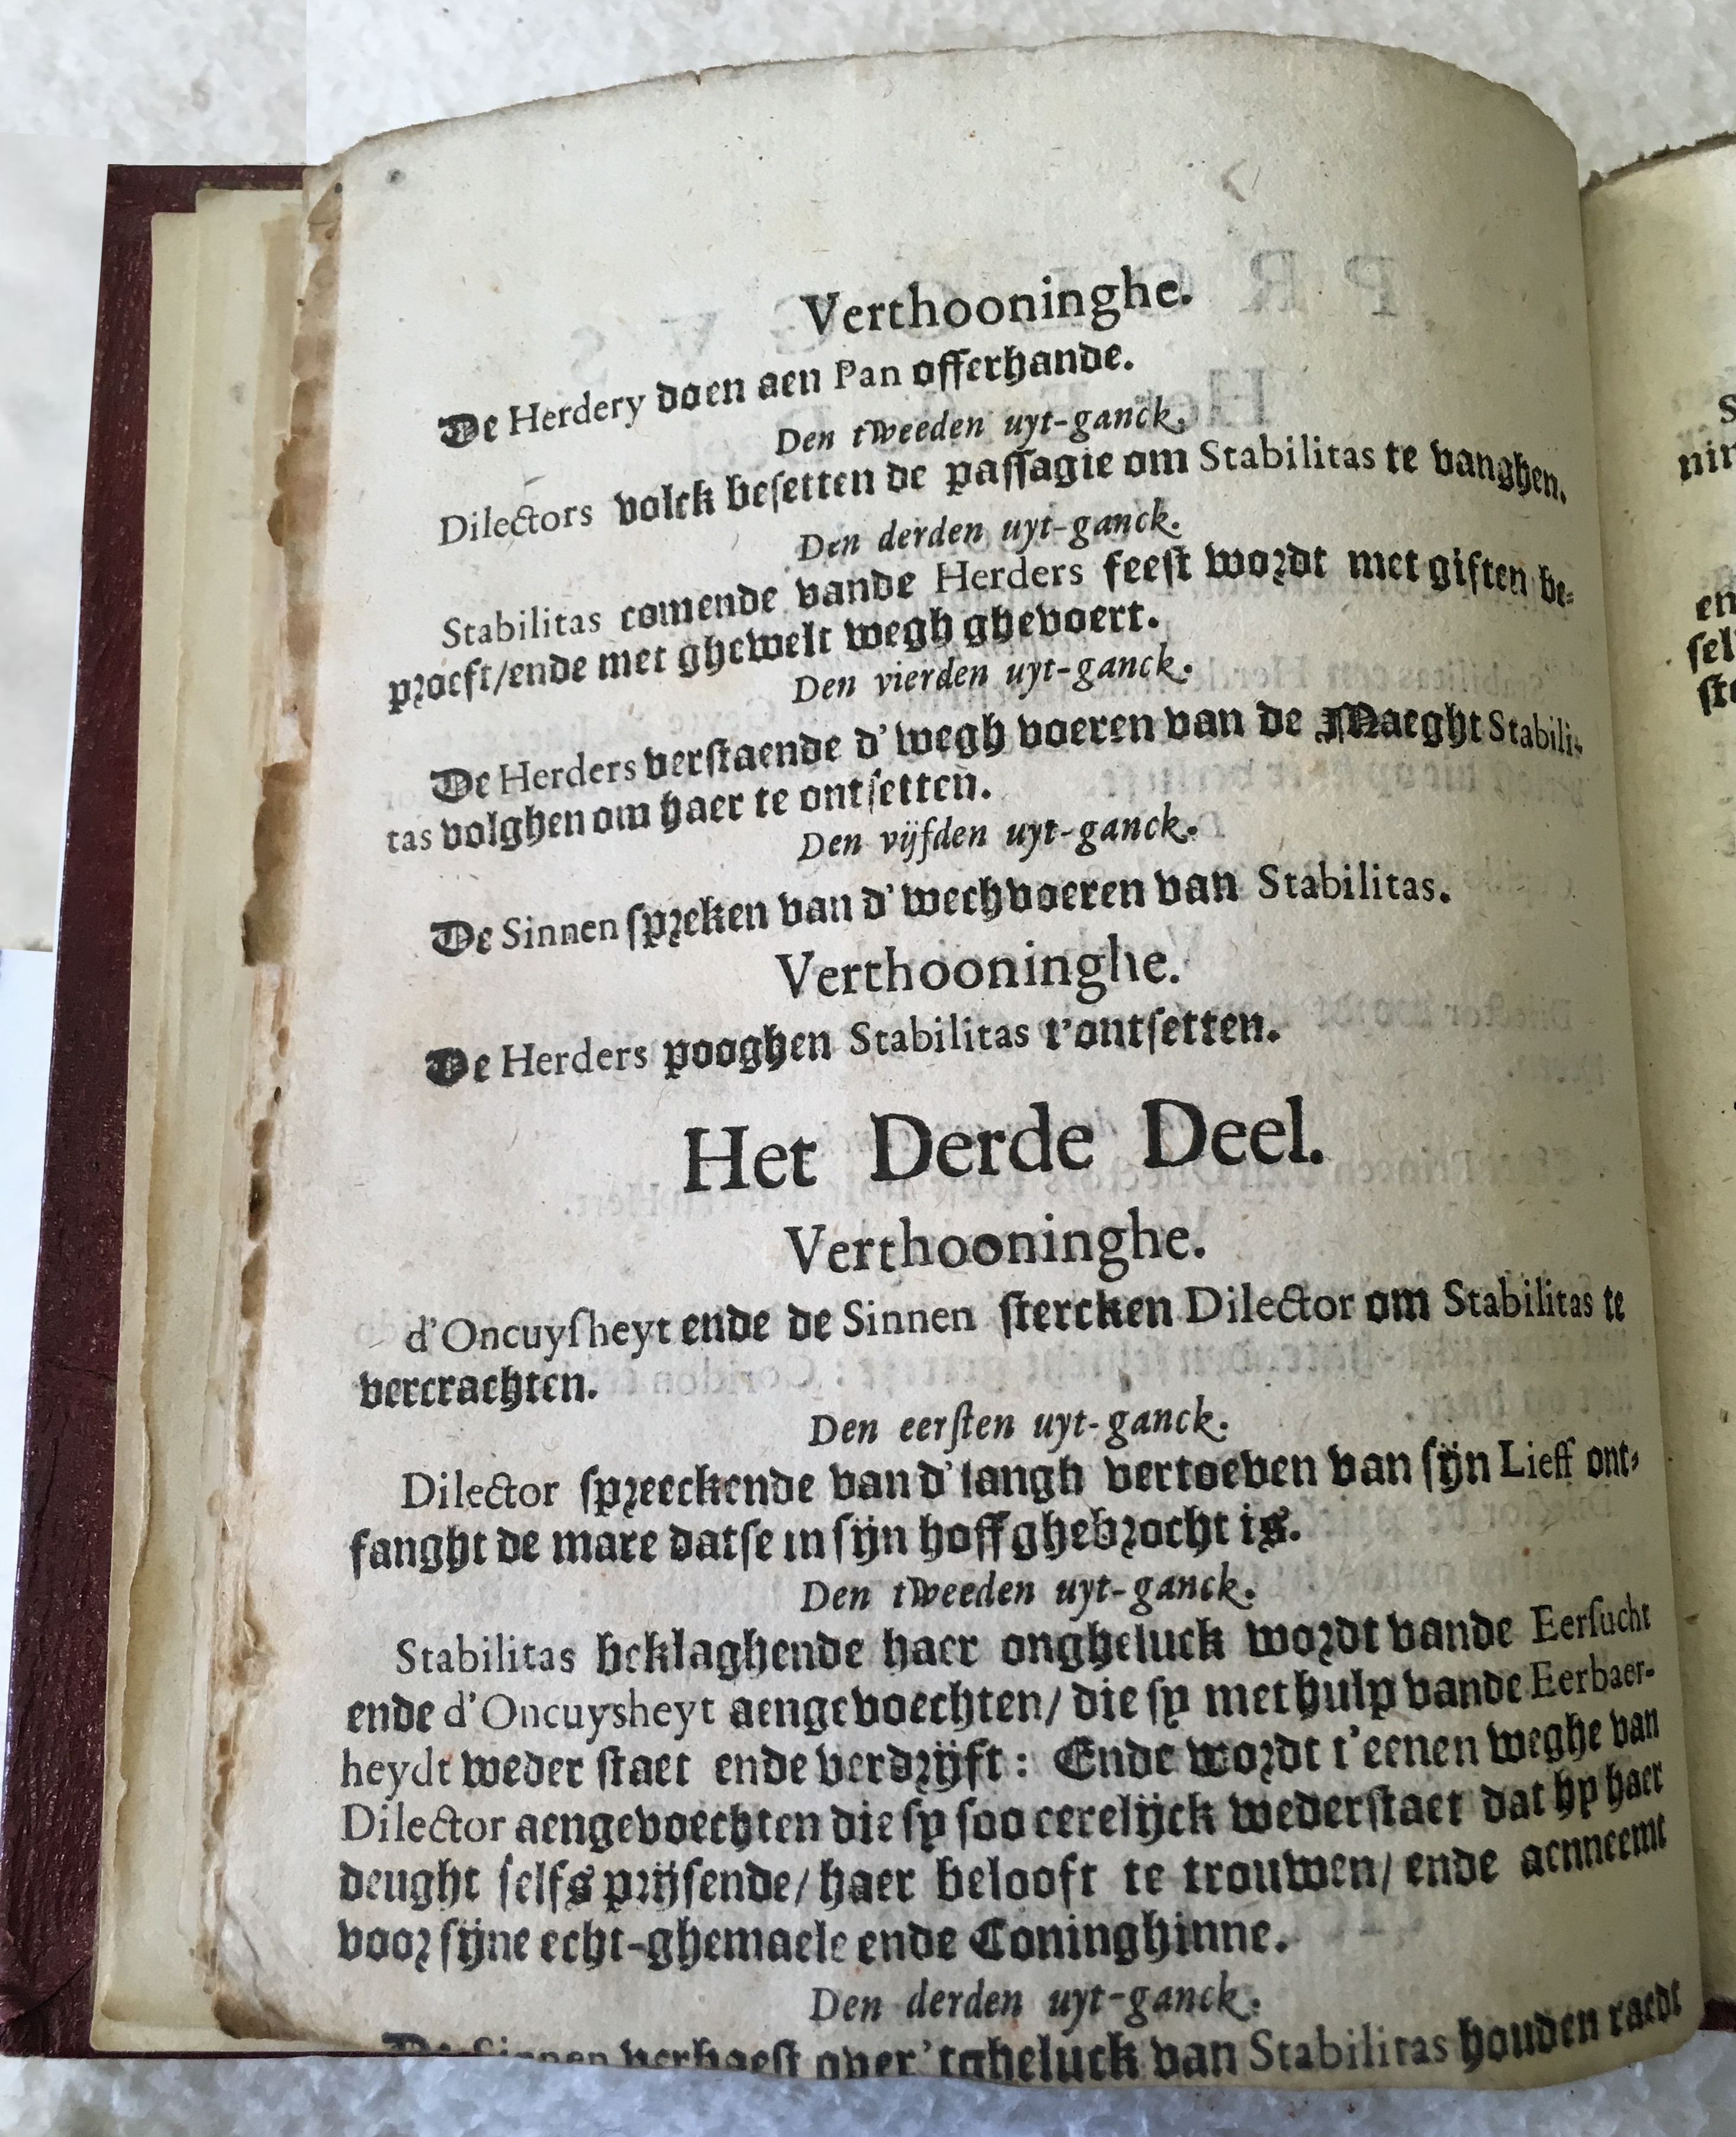 Verthooninghe.
De Herdery doen aen Pan offerhande.
Den tweeden uyt-ganck.
Dilectors volck beſetten de paſſagie om Stabilitas te vanghen.
Den derden uyt-ganck.
Stabilitas comende vande Herders feeſt wordt met giften be-
proeft/ende met ghewelt wegh ghevoert.
Den vierden uyt-ganck.
De Herders verſtaende d'wegh voeren van de Maeght Stabili-
tas volghen om haer te ontſetten.
Den vijfden uyt-ganck.
De Sinnen ſpreken van d'wechvoeren van Stabilitas.
Verthooninghe.
De Herders pooghen Stabilitas t'ontſetten.
Het Derde Deel.
Verthooninghe.
d'Oncuyſheyt ende de Sinnen ſtercken Dilector om Stabilitas te
vercrachten.
Den eerſten uyt-ganck.
Dilector ſpreeckende van d'langh vertoeven van ſijn Lieff ont-
fanght de mare datſe in ſijn hoff ghebrocht is.
Den tweeden uyt-ganck.
Stabilitas beklaghende haer ongheluck wordt vande Eerſucht
ende d'Oncuysheyt aengevoechten/ die ſy met hulp vande Eerbaer-
heydt weder ſtaet ende verdrijft: Ende wordt t'eenen weghe van
Dilector aengevoechten die ſy ſoo eerelijck wederſtaet dat hy haer
deught ſelfs prijſende/ haer belooft te trouwen/ ende aenneemt
voor ſijne echt-ghemaele ende Coninghinne.
Den derden uyt-ganck.
De Sinnen verbaeſt over 'tgheluck van Stabilitas houden raedt